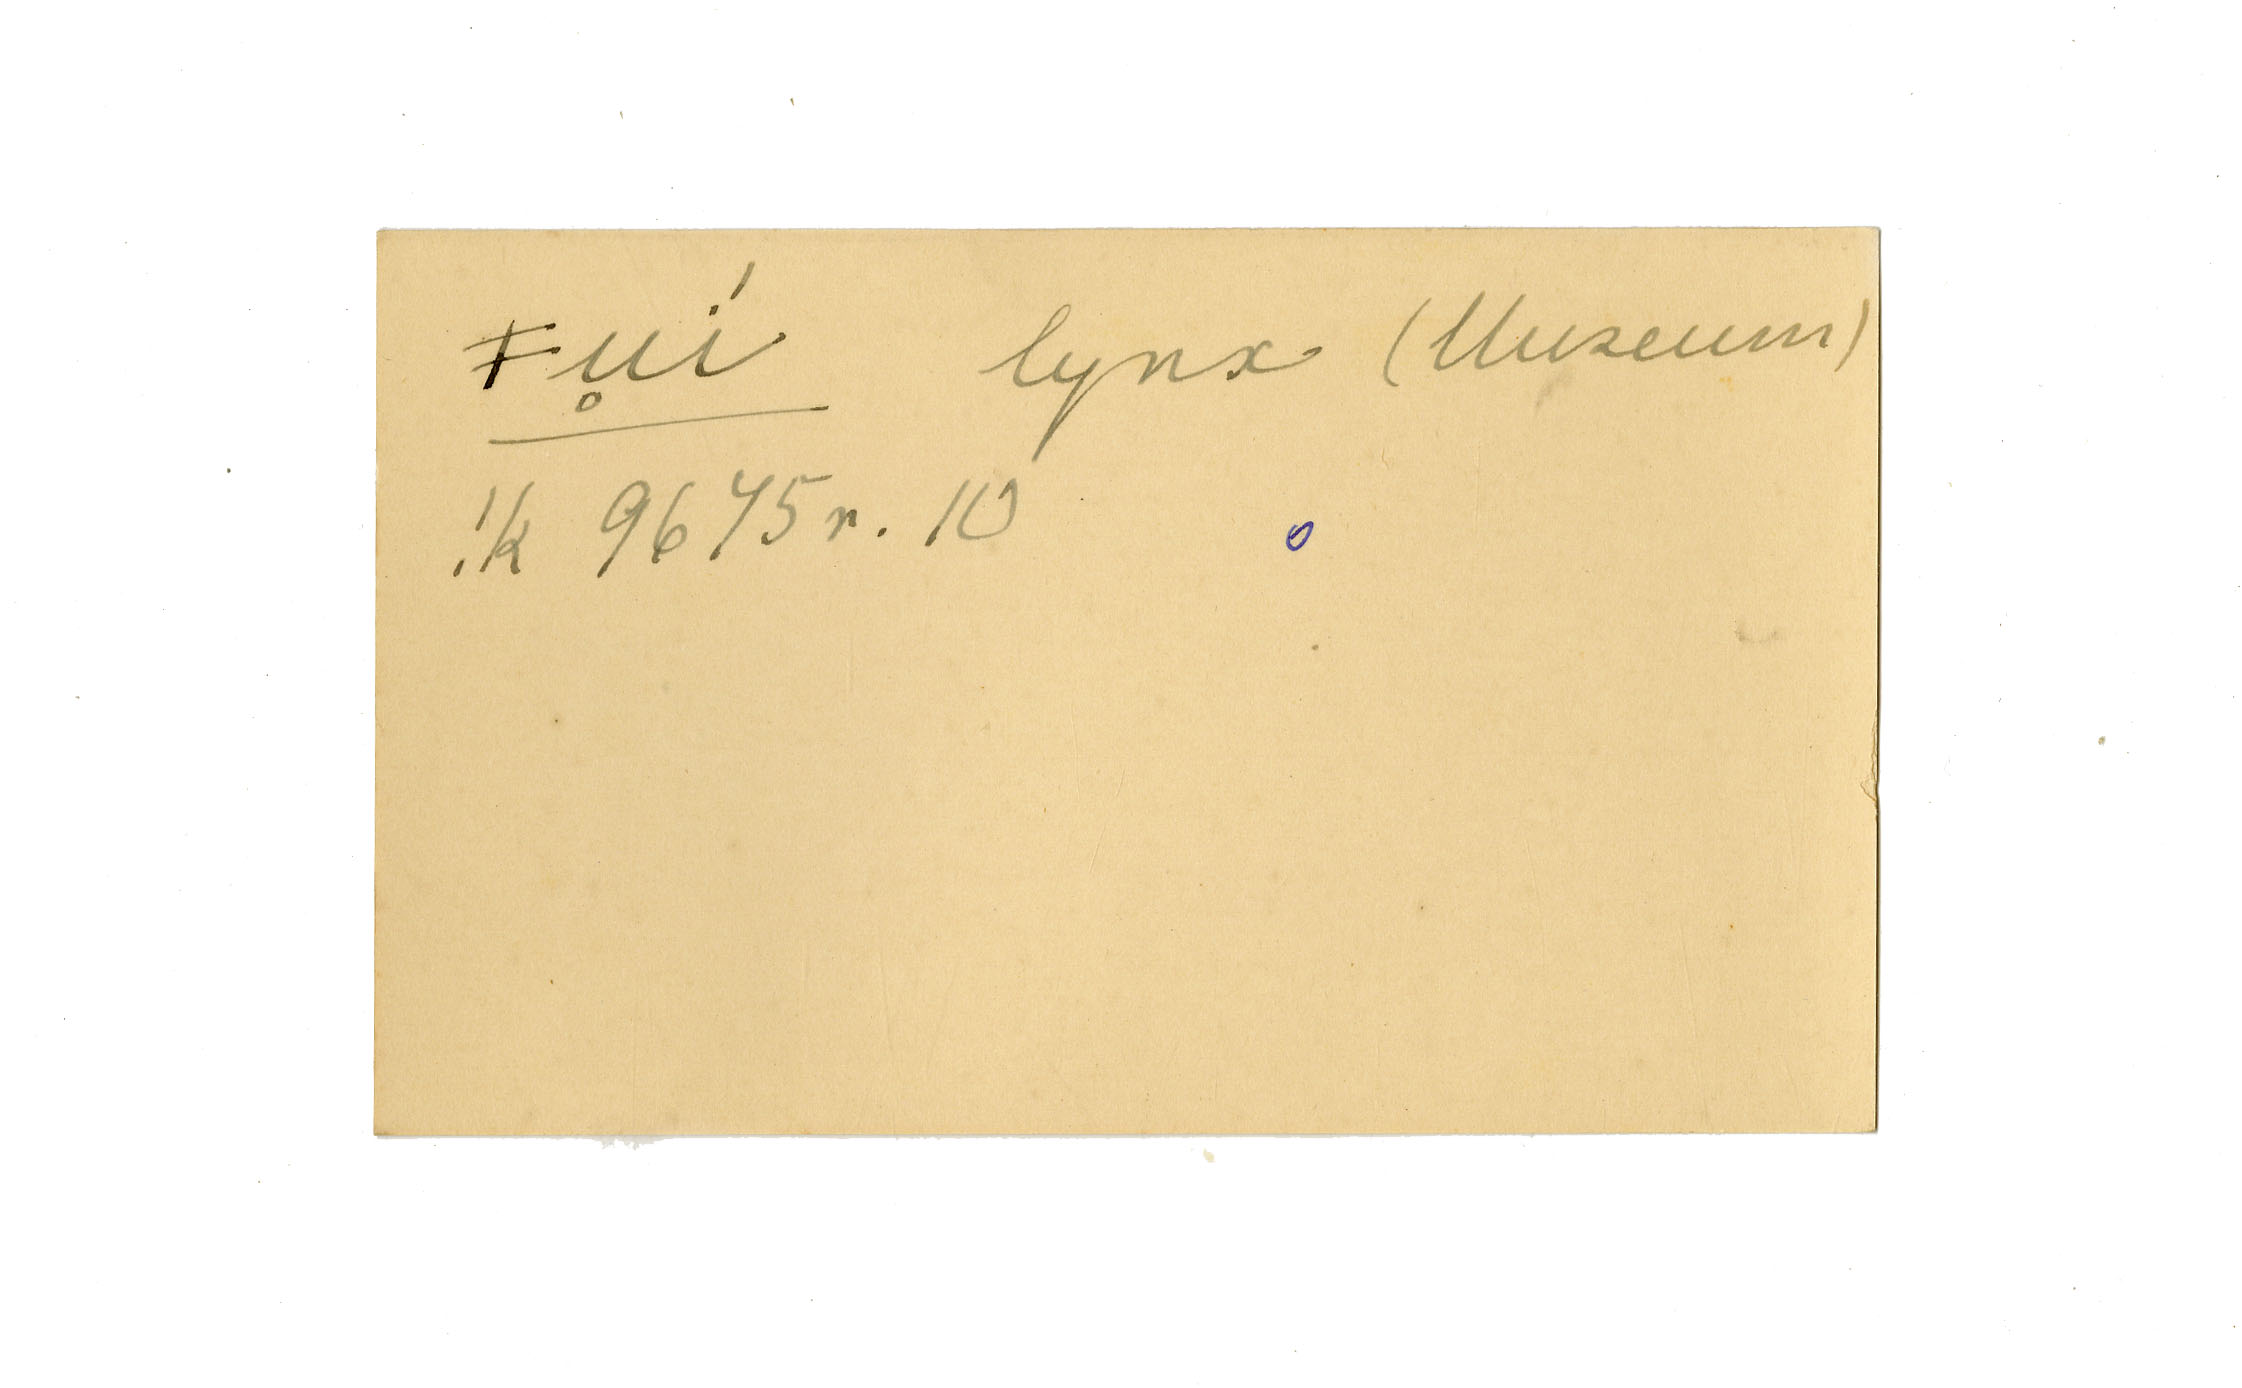 ǂu̥í lynx (Museum)
!k 9675r. 10